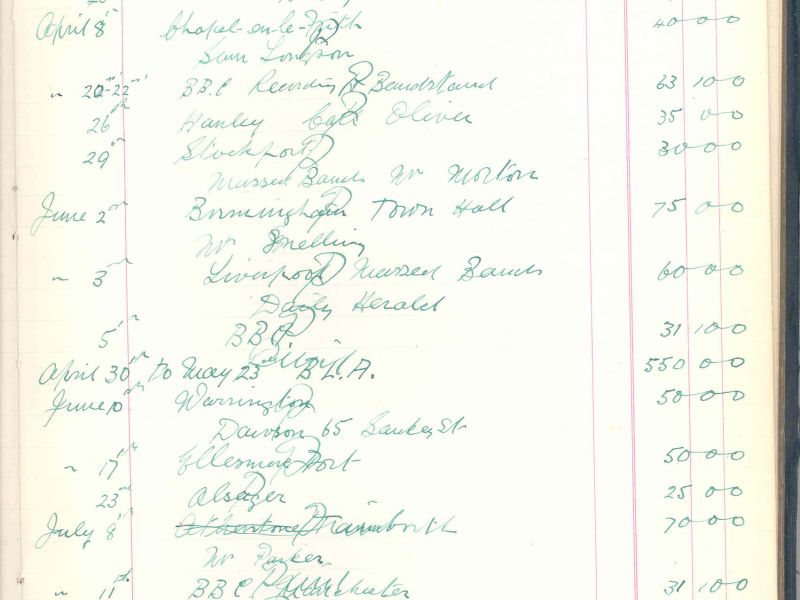 April 8th Chapel-en-le-Frith 40 0 0
Sam Longson
" 20th-22nd BBC Recording & Bandstand 63 10 0
26th Hanley Café Oliver 35 0 0
29th Stockport 30 0 0
Massed Bands Mr Morton
June 2nd Birmingham Town Hall 75 0 0
Mr Snelling
" 3rd Liverpool Massed Bands 60 0 0
Daily Herald
5th BBC 31 10 0
April 30th to May 23 B.L.A. 550 0 0
June 10th Warrington 50 0 0
Dawson 65 Sankey St
" 17th Ellesmere Port 50 0 0
23rd Alsager 25 0 0
July 8th Atherstone 70 0 0
Mr Parker
" 11th BBC Manchester 31 10 0